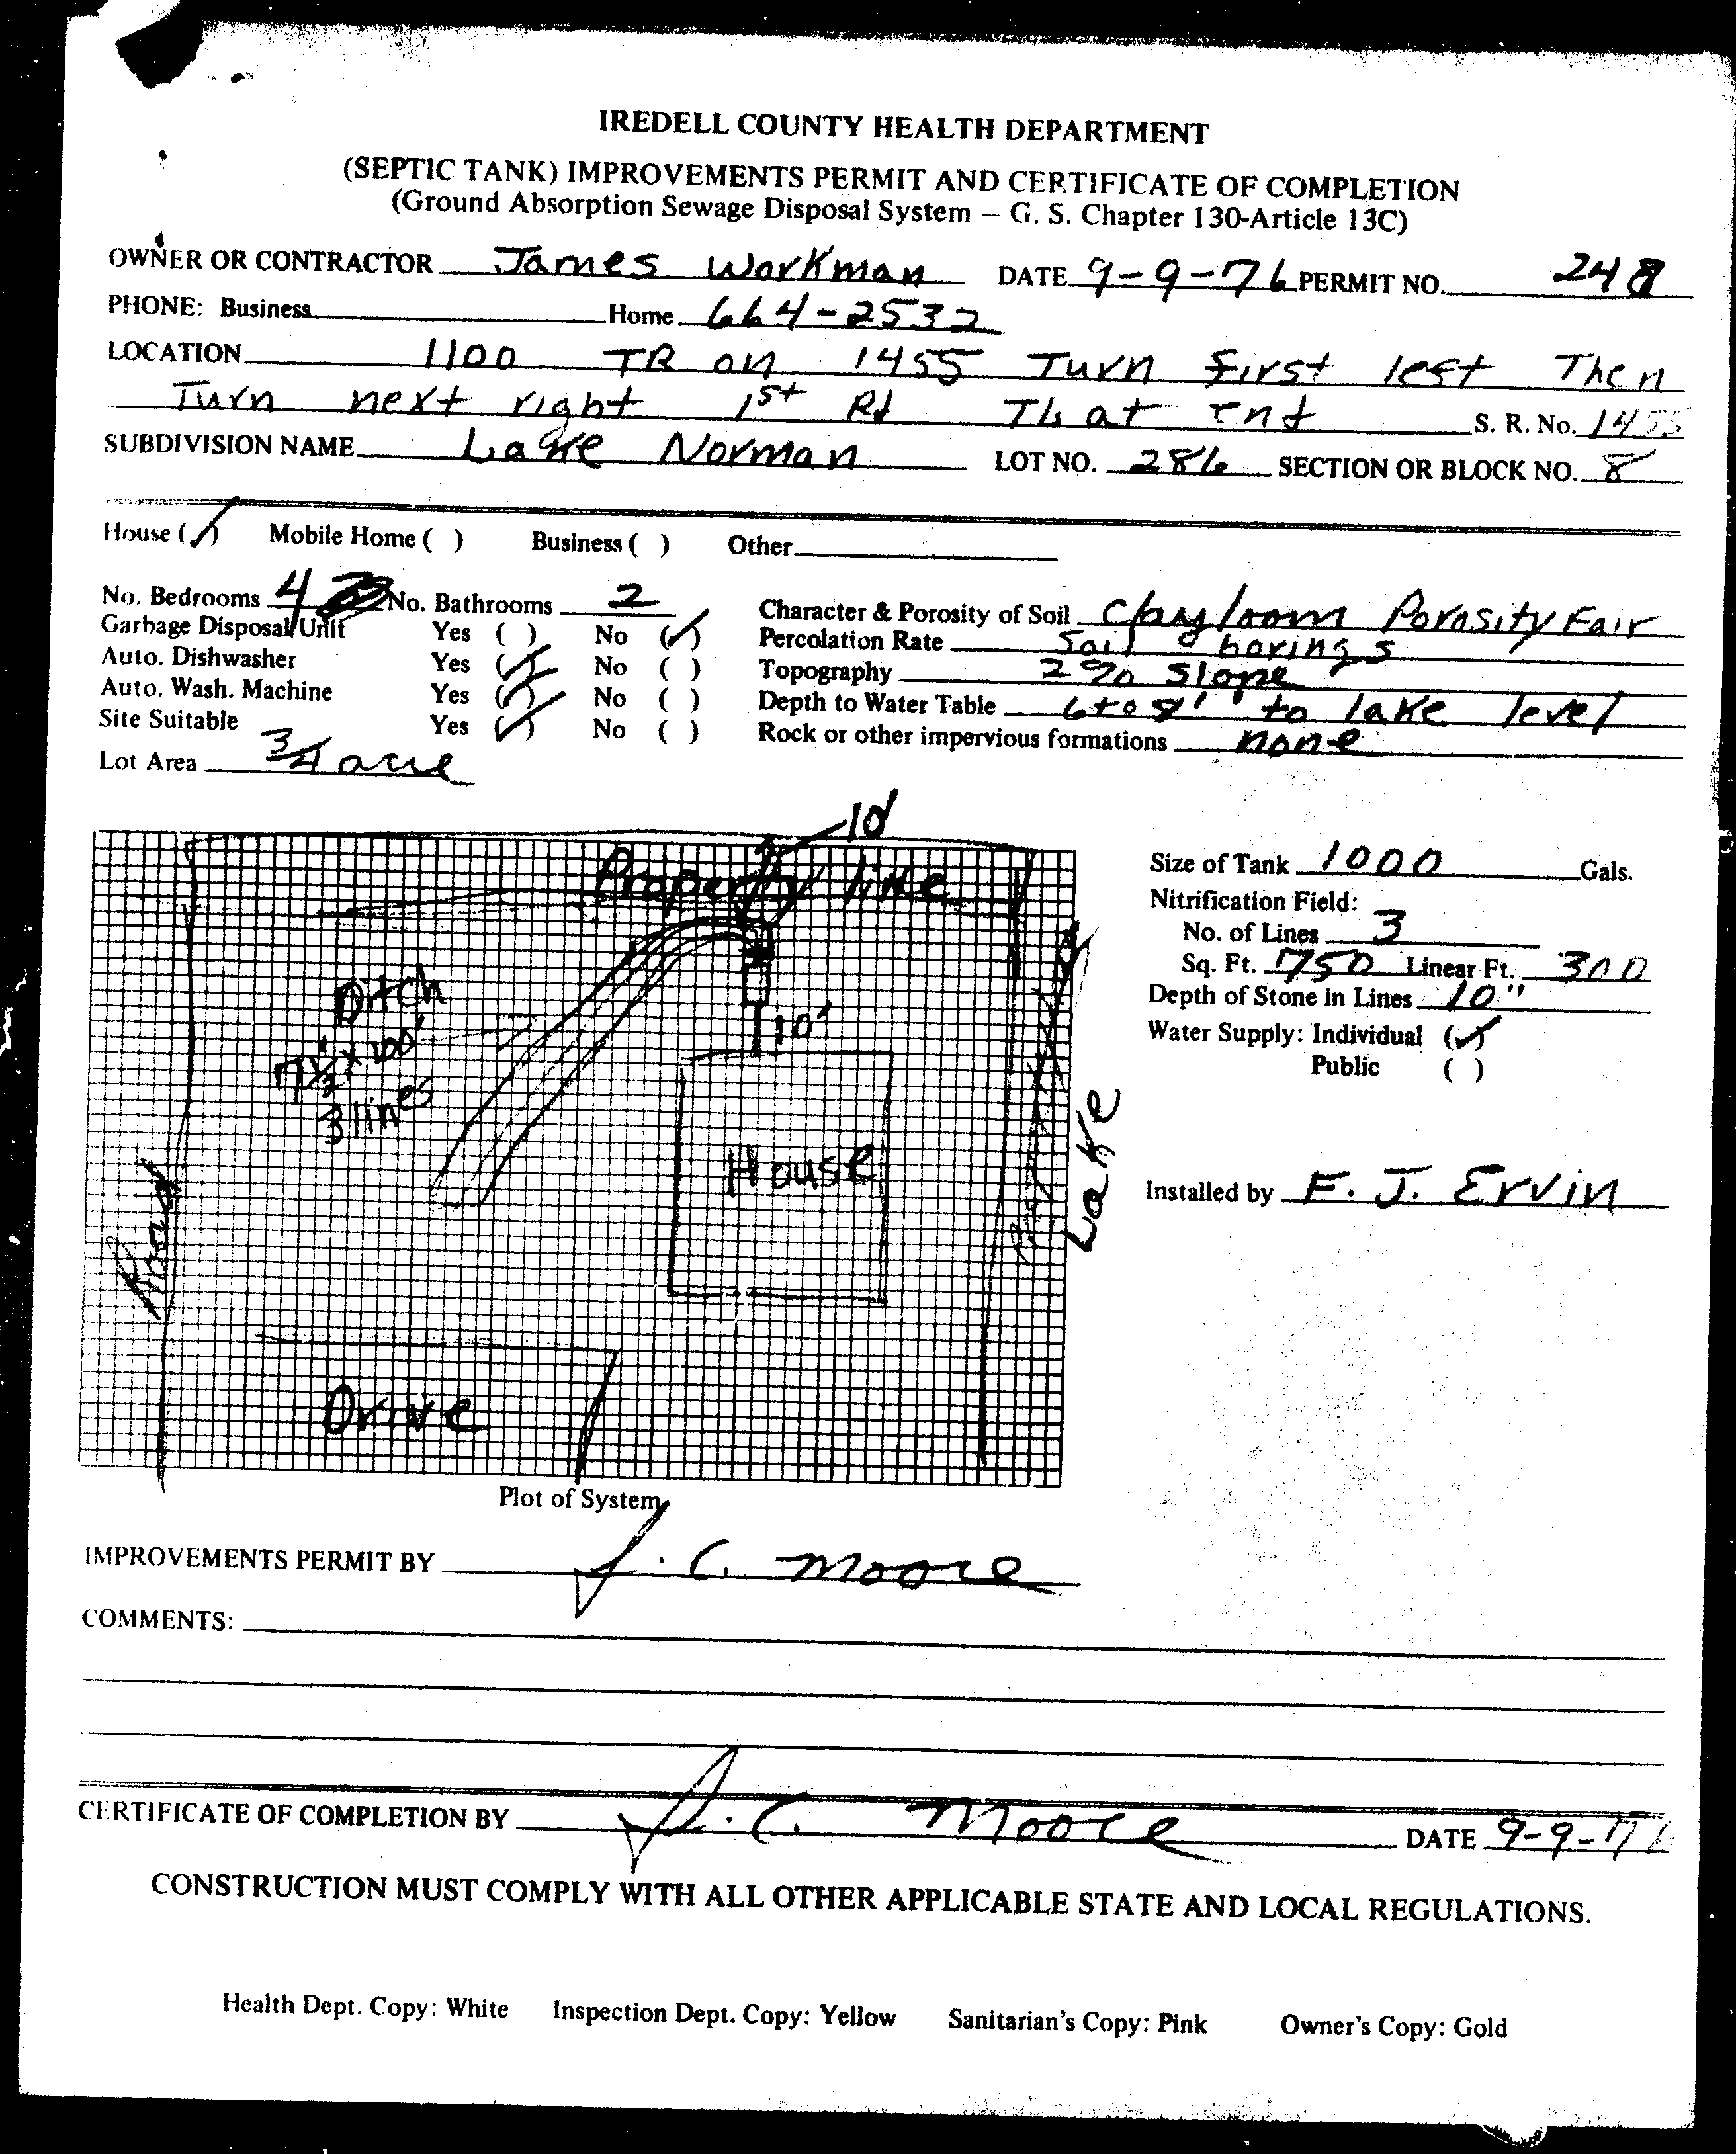 IREDELL COUNTY HEALTH DEPARTMENT
(SEPTIC TANK) IMPROVEMENTS PERMIT AND CERTIFICATE OF COMPLETION
(Ground Absorption Sewage Disposal System – G. S. Chapter 130-Article 13C)
OWNER OR CONTRACTOR James Workman DATE 9-9-76 PERMIT NO. 248
PHONE: Business Home 664-2532
LOCATION 1100 TR on 1455 Turn first left Then
Turn next right 1st Rd That end S. R. No. 1455
SUBDIVISION NAME Lake Norman LOT NO. 286 SECTION OR BLOCK NO. 8
House (✓) Mobile Home ( ) Business ( ) Other
No. Bedrooms 4 No. Bathrooms 2
Garbage Disposal Unit Yes ( ) No (✓)
Auto. Dishwasher Yes (✓) No ( )
Auto. Wash. Machine Yes (✓) No ( )
Site Suitable Yes (✓) No ( )
Lot Area 3/4 acre
Character & Porosity of Soil Clay loam Porosity Fair
Percolation Rate Soil borings
Topography 2% Slope
Depth to Water Table 6 to 8' to lake level
Rock or other impervious formations none
10'
Property line
Ditch
7 1/2 x 100'
3 lines
10'
House
Road
Lake
Drive
Plot of System
Size of Tank 1000 Gals.
Nitrification Field:
No. of Lines 3
Sq. Ft. 750 Linear Ft. 300
Depth of Stone in Lines 10"
Water Supply: Individual (✓)
Public ( )
Installed by F. J. Ervin
IMPROVEMENTS PERMIT BY J. C. Moore
COMMENTS:
CERTIFICATE OF COMPLETION BY J. C. Moore DATE 9-9-76
CONSTRUCTION MUST COMPLY WITH ALL OTHER APPLICABLE STATE AND LOCAL REGULATIONS.
Health Dept. Copy: White Inspection Dept. Copy: Yellow Sanitarian's Copy: Pink Owner's Copy: Gold